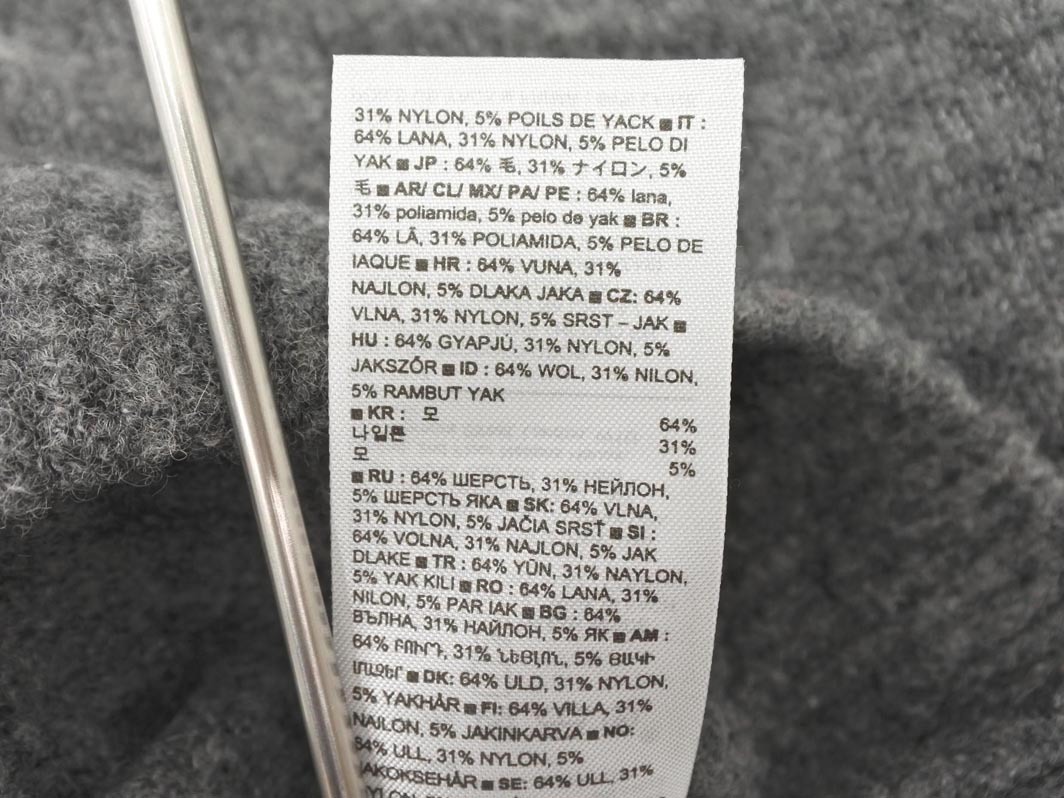 31% NYLON, 5% POILS DE YACK ■ IT :
64% LANA, 31% NYLON, 5% PELO DI
YAK ■ JP : 64% 毛, 31% ナイロン, 5%
毛 ■ AR/ CL/ MX/ PA/ PE : 64% lana,
31% poliamida, 5% pelo de yak ■ BR :
64% LÃ, 31% POLIAMIDA, 5% PELO DE
IAQUE ■ HR : 64% VUNA, 31%
NAJLON, 5% DLAKA JAKA ■ CZ: 64%
VLNA, 31% NYLON, 5% SRST – JAK ■
HU : 64% GYAPJÚ, 31% NYLON, 5%
JAKSZŐR ■ ID : 64% WOL, 31% NILON,
5% RAMBUT YAK
■ KR : 모 64%
나일론 31%
모 5%
■ RU : 64% ШЕРСТЬ, 31% НЕЙЛОН,
5% ШЕРСТЬ ЯКА ■ SK: 64% VLNA,
31% NYLON, 5% JAČIA SRSŤ ■ SI :
64% VOLNA, 31% NAJLON, 5% JAK
DLAKE ■ TR : 64% YÜN, 31% NAYLON,
5% YAK KILI ■ RO : 64% LANA, 31%
NILON, 5% PAR IAK ■ BG : 64%
ВЪЛНА, 31% НАЙЛОН, 5% ЯК ■ AM :
64% ԲՈՒՐԴ, 31% ՆԵՅԼՈՆ, 5% ՅԱԿԻ
■ DK: 64% ULD, 31% NYLON,
5% YAKHÅR ■ FI: 64% VILLA, 31%
NAILON, 5% JAKINKARVA ■ NO:
64% ULL, 31% NYLON, 5%
JAKOKSEHÅR ■ SE: 64% ULL, 31%